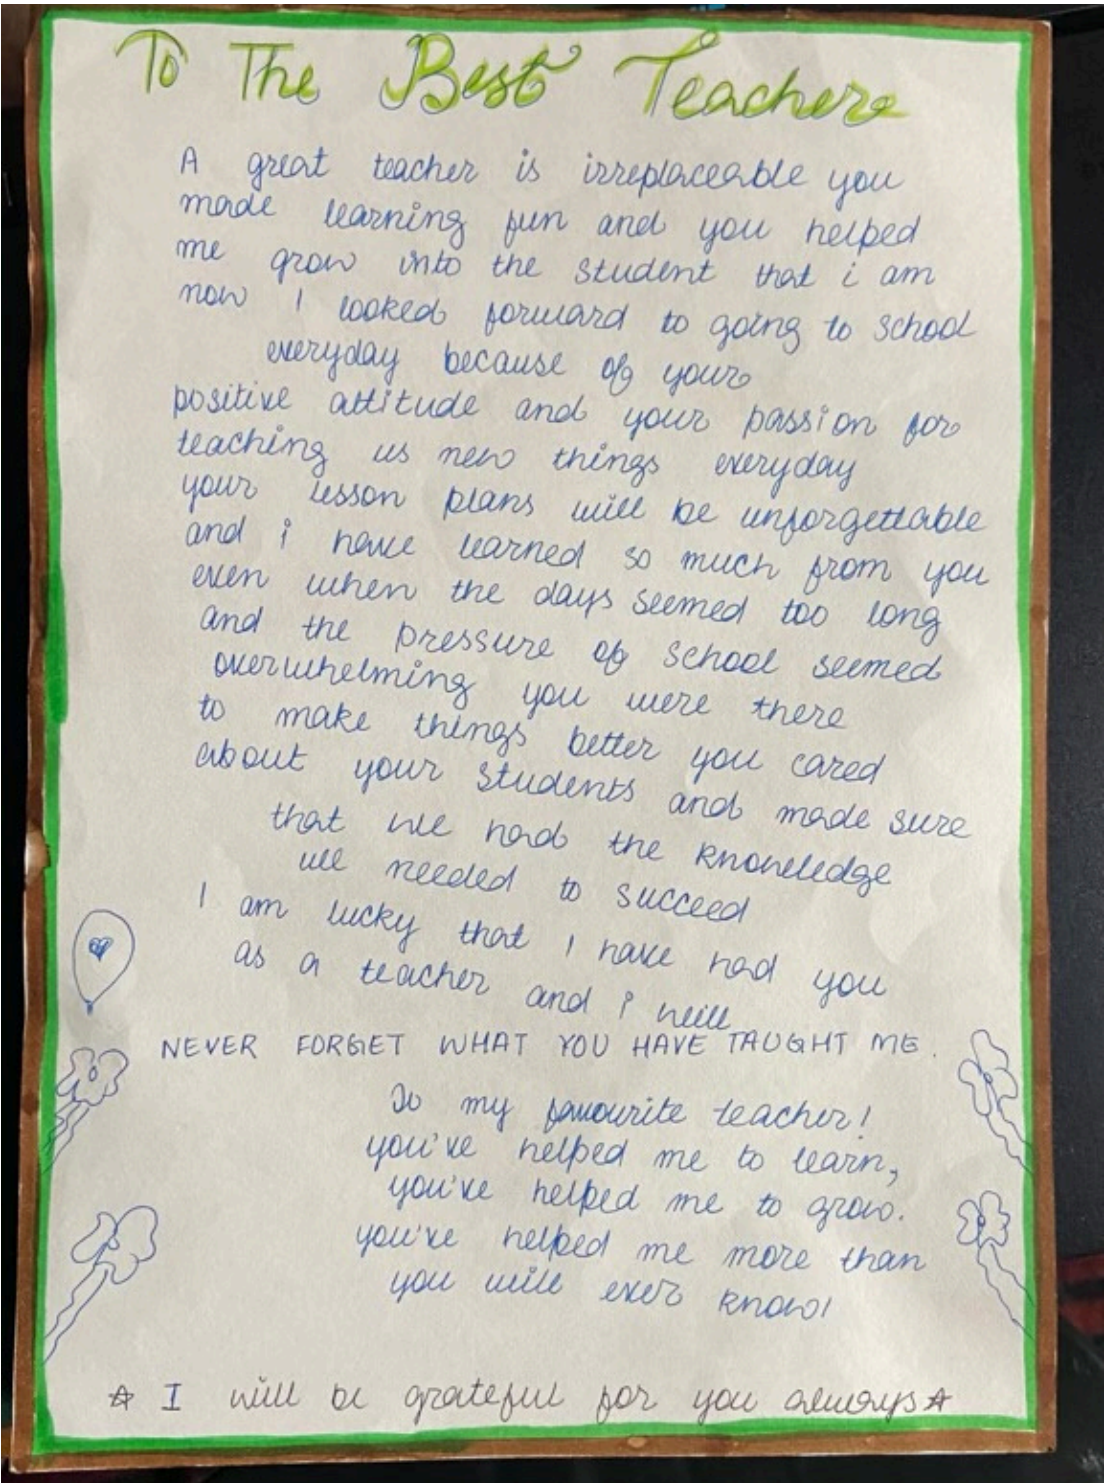 To The Best Teacher
A great teacher is irreplaceable you
made learning fun and you helped
me grow into the student that i am
now I looked forward to going to school
everyday because of your
positive attitude and your passion for
teaching us new things everyday
your lesson plans will be unforgettable
and i have learned so much from you
even when the days seemed too long
and the pressure of school seemed
overwhelming you were there
to make things better you cared
about your students and made sure
that we had the knowledge
we needed to succeed
I am lucky that I have had you
as a teacher and i will
NEVER FORGET WHAT YOU HAVE TAUGHT ME.
To my favourite teacher!
you've helped me to learn,
you've helped me to grow.
you've helped me more than
you will ever know!
☆ I will be grateful for you always ☆